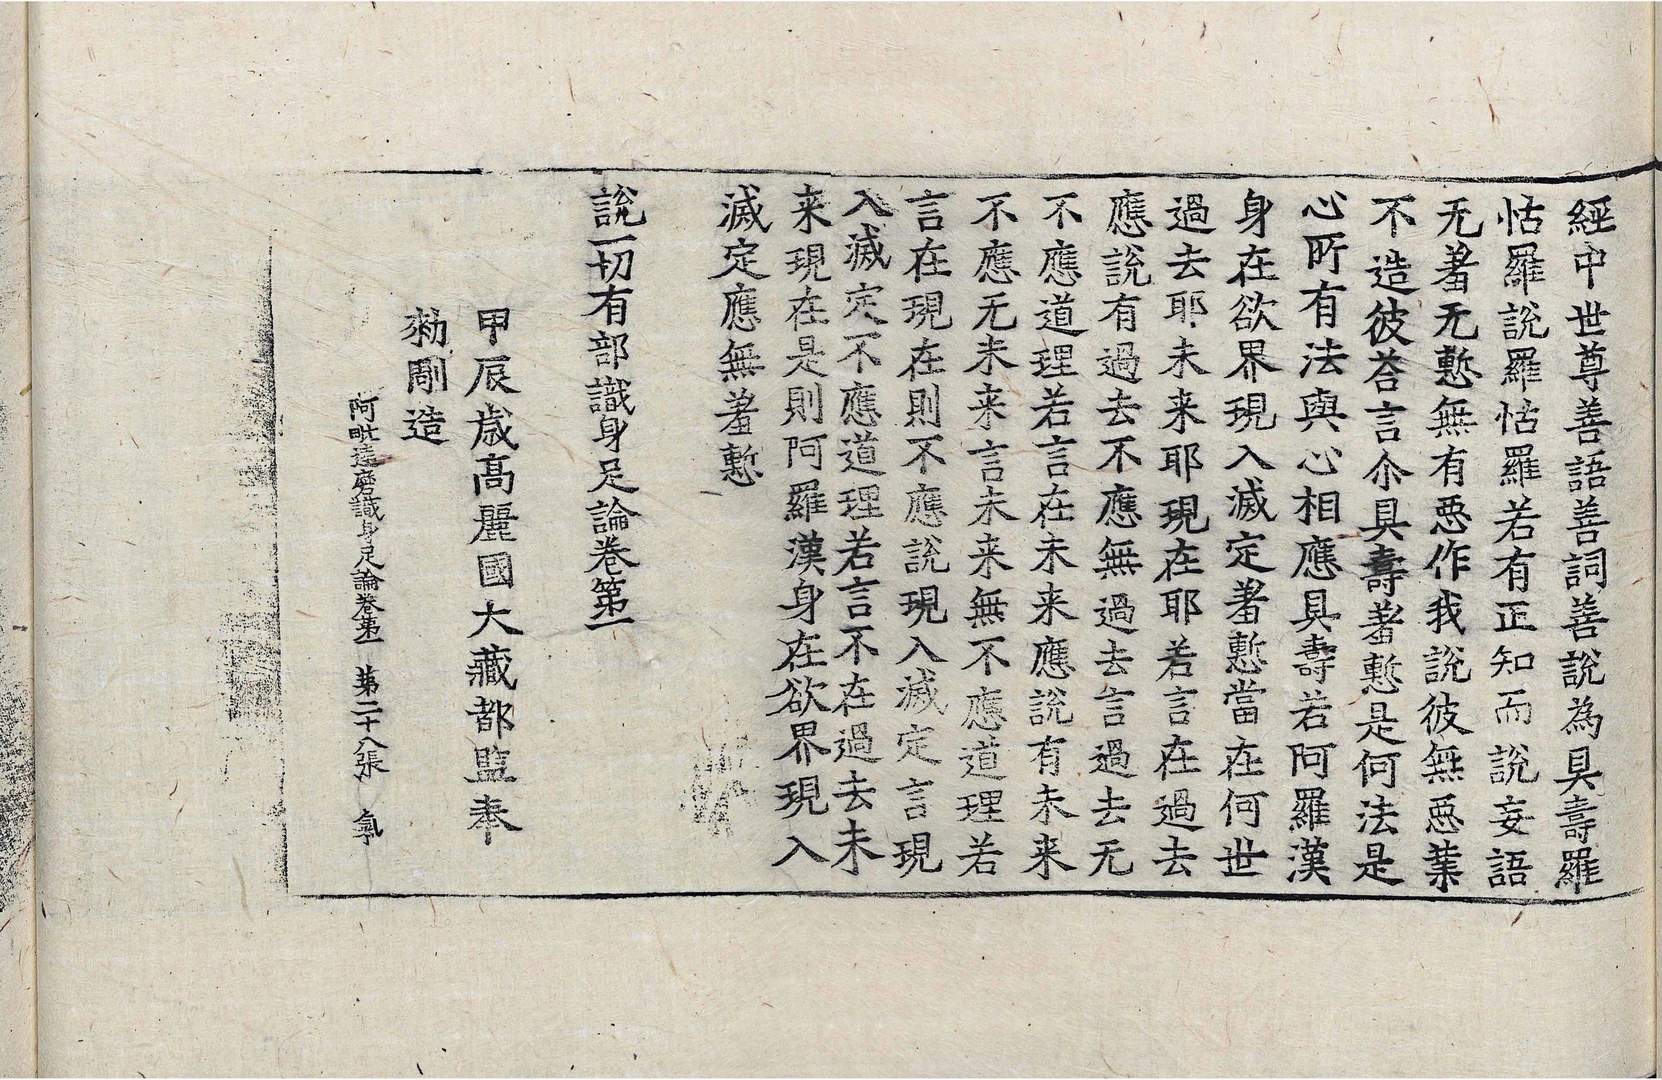 經中世尊善語善詞善說為具壽羅
怙羅說羅怙羅若有正知而說妄語
无羞无慙無有惡作我說彼無惡業
不造彼荅言尒具壽羞慙是何法是
心所有法與心相應具壽若阿羅漢
身在欲界現入滅定羞慙當在何世
過去耶未来耶現在耶若言在過去
應說有過去不應無過去言過去无
不應道理若言在未来應說有未来
不應无未来言未来無不應道理若
言在現在則不應說現入滅定言現
入滅定不應道理若言不在過去未
来現在是則阿羅漢身在欲界現入
滅定應無羞慙
說一切有部識身足論卷第一
甲辰歲高麗國大藏都監奉
勑彫造
阿毗達磨識身足論卷第一 第二十八張 氣